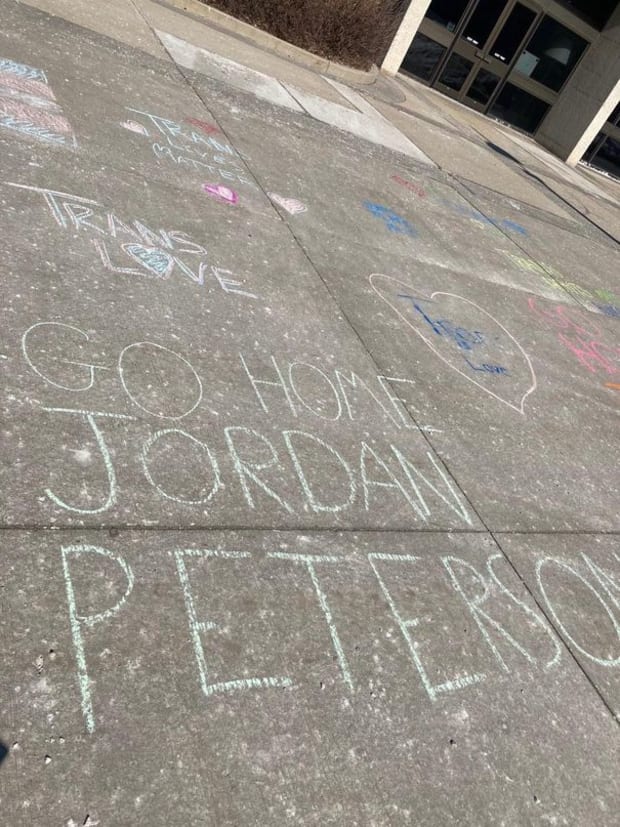 TRANS
LIVES
MATTER
TRANS
LOVE
GO HOME
JORDAN
PETERSON
Love
GO